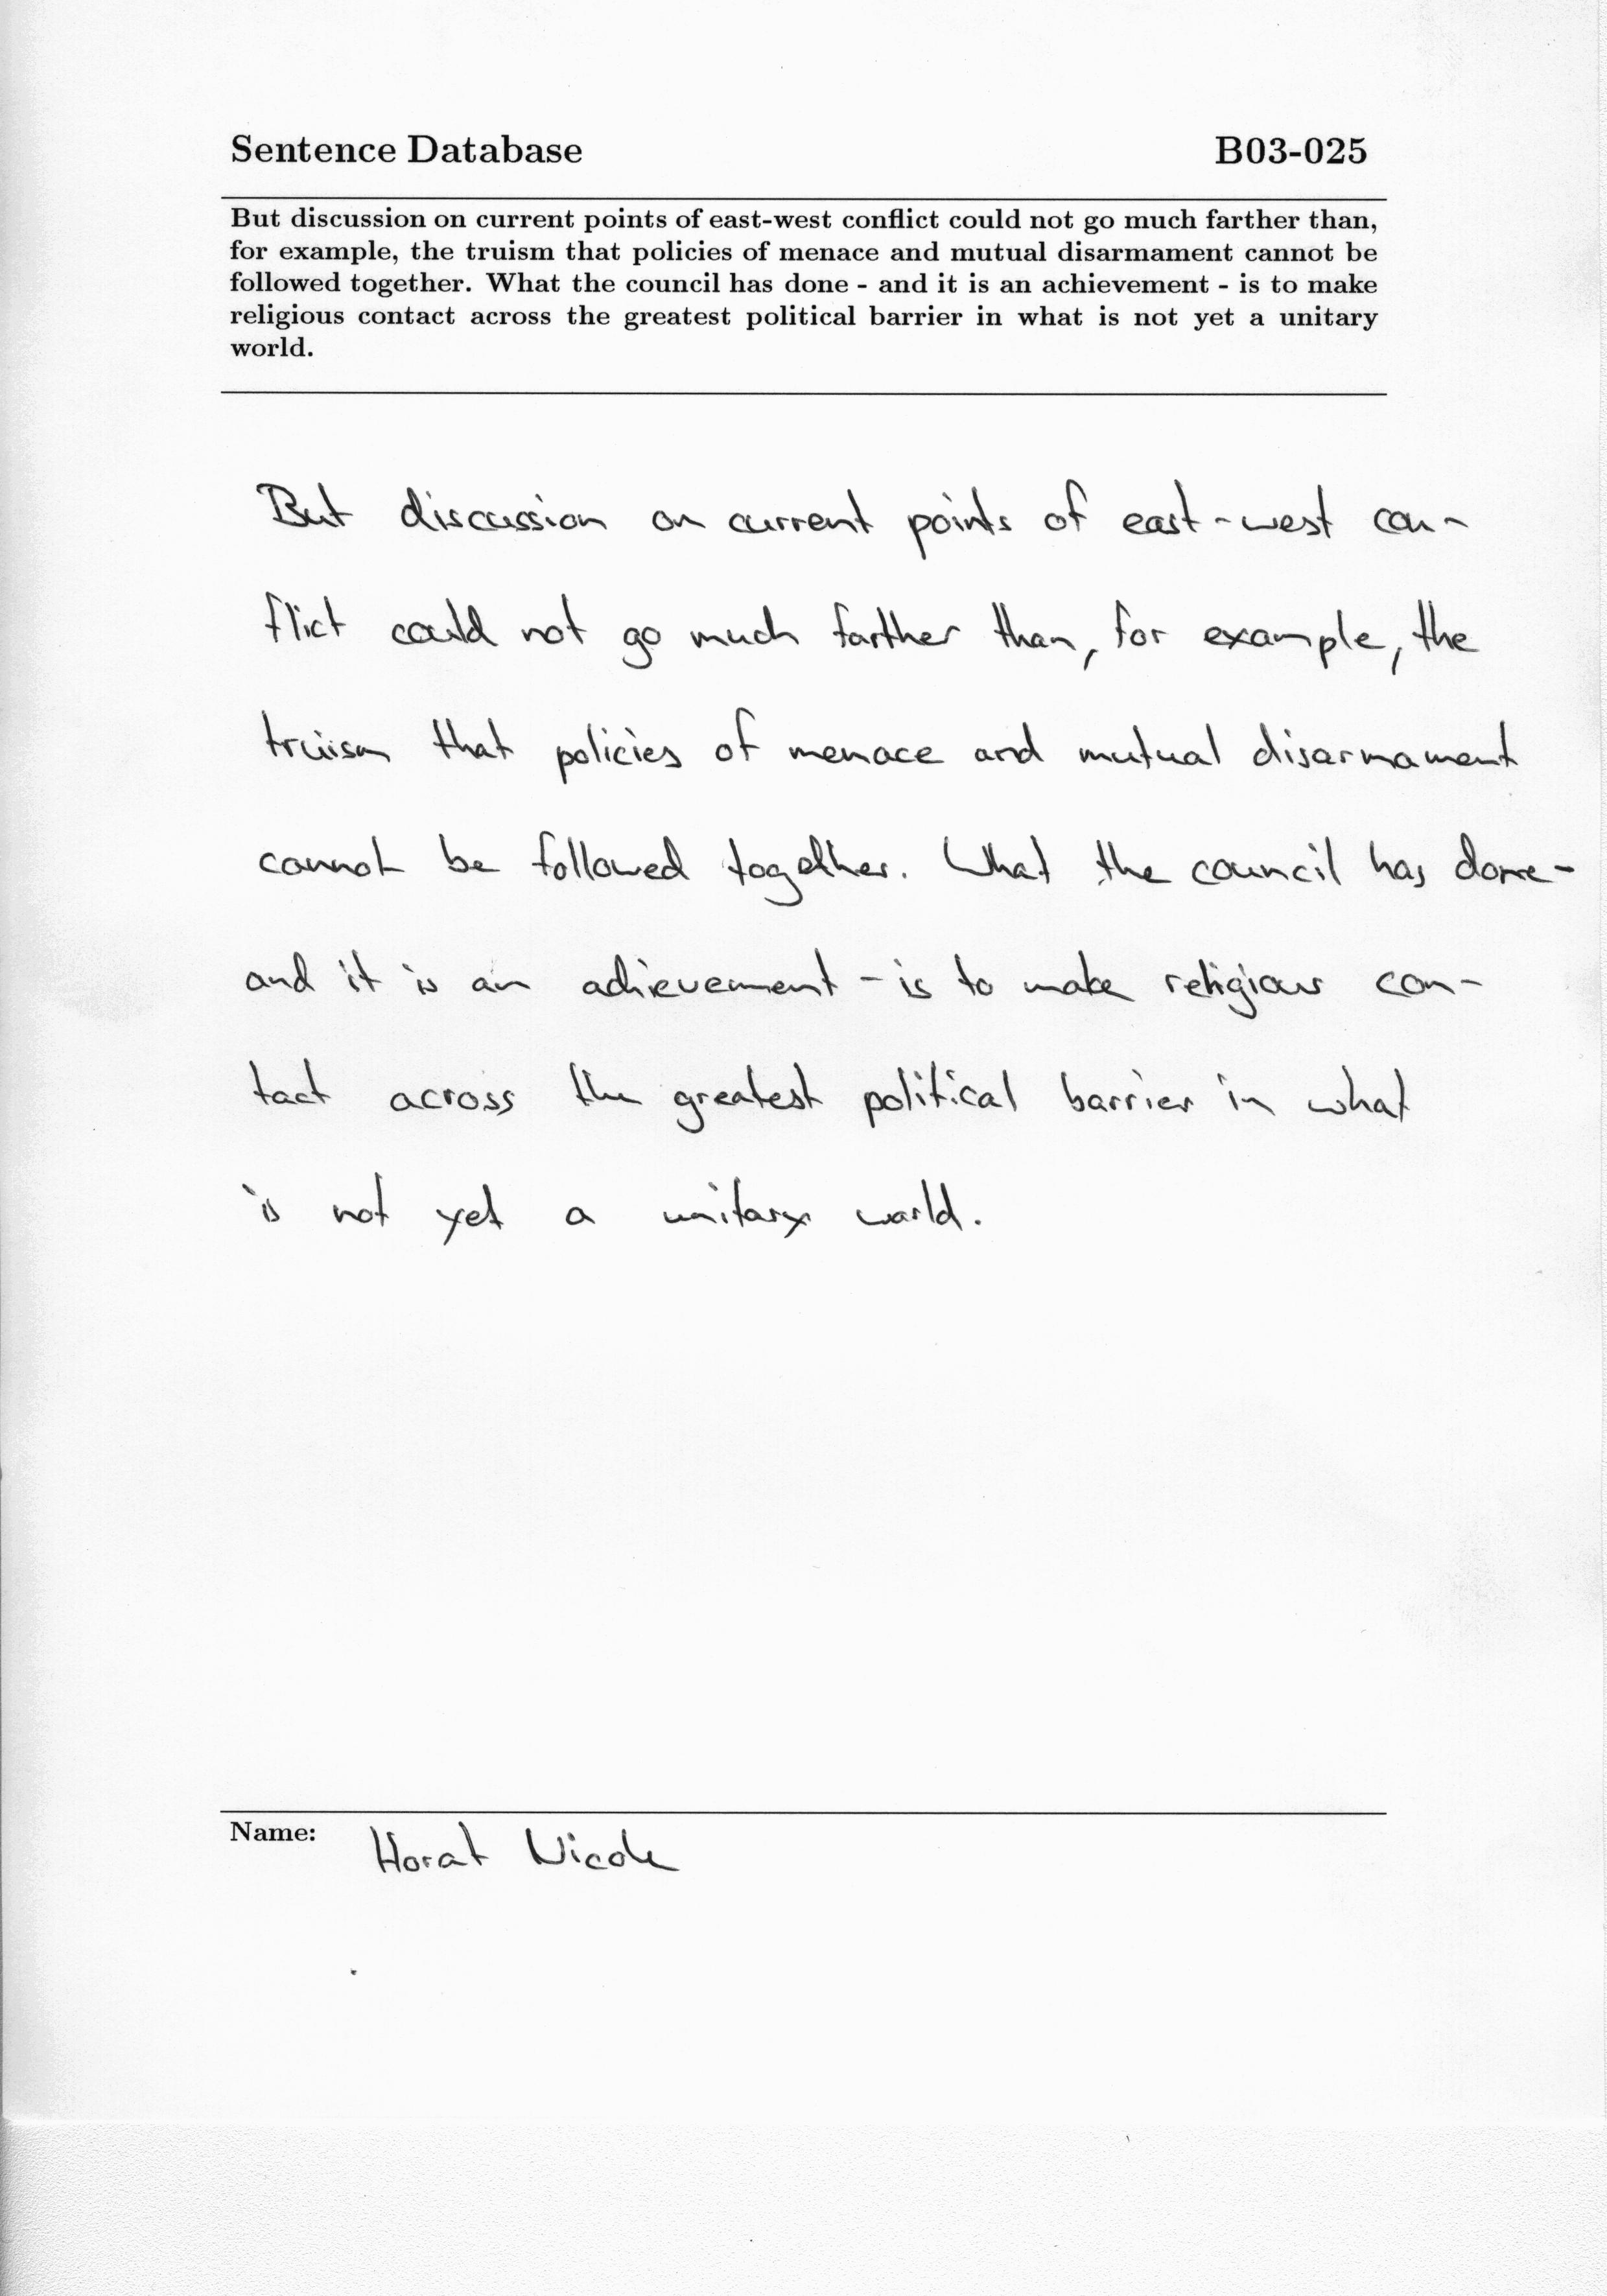 Sentence Database B03-025
But discussion on current points of east-west conflict could not go much farther than,
for example, the truism that policies of menace and mutual disarmament cannot be
followed together. What the council has done - and it is an achievement - is to make
religious contact across the greatest political barrier in what is not yet a unitary
world.
But discussion on current points of east-west con-
flict could not go much farther than, for example, the
truism that policies of menace and mutual disarmament
cannot be followed together. What the council has done-
and it is an achievement - is to make religious con-
tact across the greatest political barrier in what
is not yet a unitary world.
Name: Horat Nicole